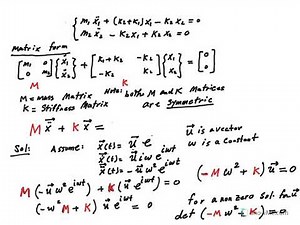 m₁ ẍ₁ + (k₂+k₁)x₁ - k₂ x₂ = 0
m₂ ẍ₂ - k₂x₁ + k₂ x₂ = 0
Matrix form
[m₁ 0; 0 m₂]{ẍ₁; ẍ₂} + [k₁+k₂ -k₂; -k₂ k₂]{x₁; x₂} = [0; 0]
M K
M = mass Matrix Note: both M and K Matrices
K = Stiffness Matrix are Symmetric
M ẍ + K x =
Sol: Assume: x(t) = u e^iwt u is a vector
ẋ(t) = u iw e^iwt w is a constant
ẍ(t) = -u w² e^iwt
M(-u w² e^iwt) + K(u e^iwt) = 0 (-M w² + K) u = 0
(-w² M + K) u e^iwt = 0 for a non zero sol. for u
det (-M w² + K) = 0